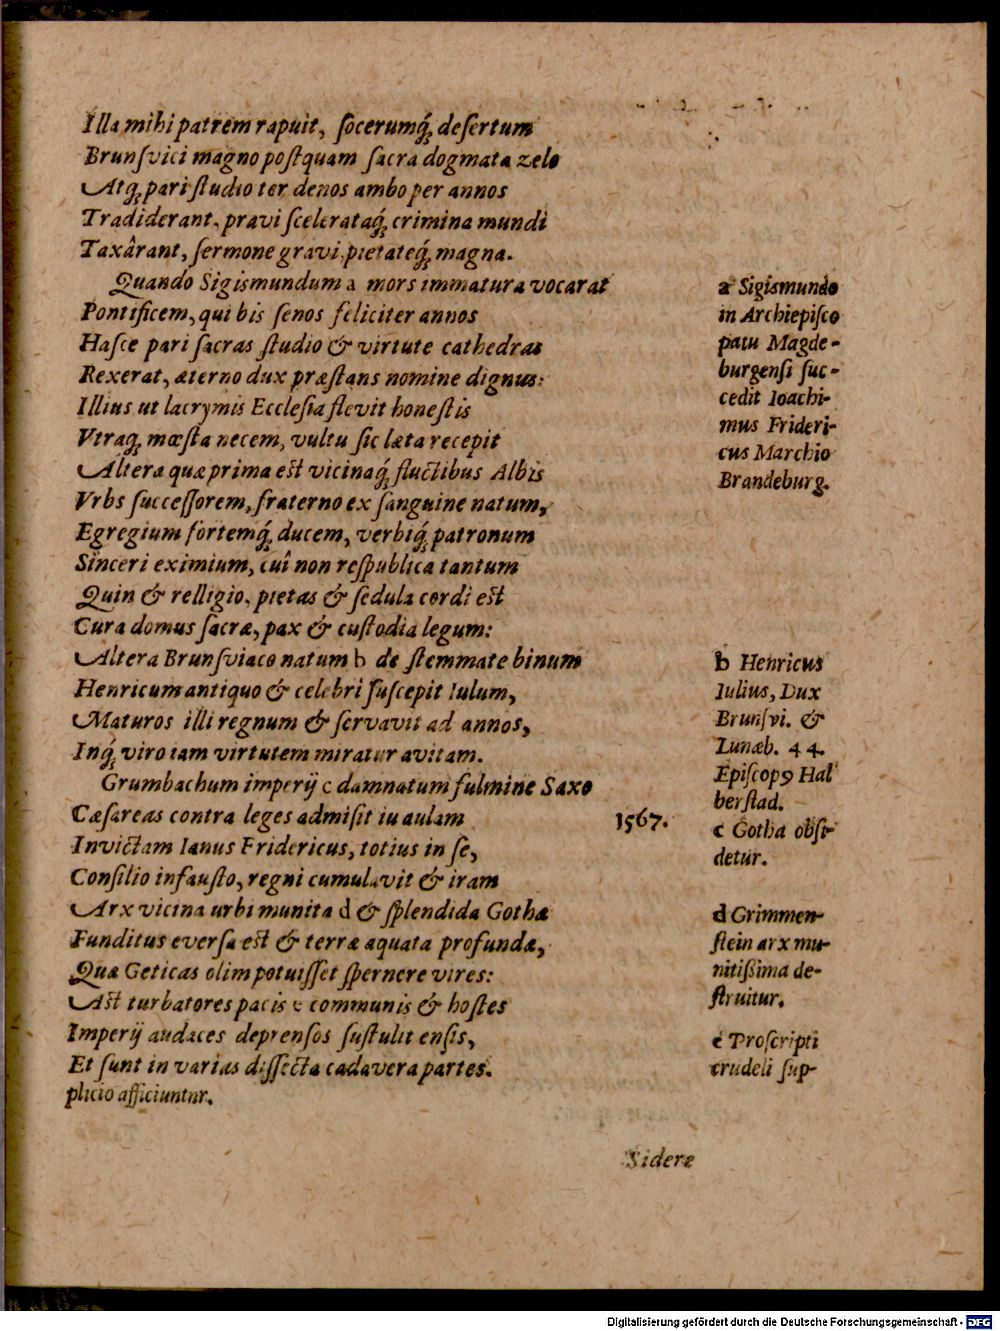 Illa mihi patrem rapuit, ſocerumq́ꝫ deſertum
Brunſvici magno poſtquam ſacra dogmata zelo
Atqꝫ pari ſtudio ter denos ambo per annos
Tradiderant, pravi ſcelerataq́ꝫ crimina mundi
Taxârant, ſermone gravi, pietateq́ꝫ magna.
Quando Sigismundum a mors immatura vocarat
Pontificem, qui bis ſenos feliciter annos
Haſce pari ſacras ſtudio & virtute cathedras
Rexerat, æterno dux præſtans nomine dignus:
Illius ut lacrymis Eccleſia flevit honeſtis
Vtraqꝫ mœſta necem, vultu ſic læta recepit
Altera quæ prima eſt vicinaq́ꝫ fluctibus Albis
Vrbs ſucceſſorem, fraterno ex ſanguine natum,
Egregium fortemq́ꝫ ducem, verbiq́ꝫ patronum
Sinceri eximium, cui non reſpublica tantum
Quin & relligio, pietas & ſedula cordi eſt
Cura domus ſacræ, pax & cuſtodia legum:
Altera Brunſviaco natum b de ſtemmate binum
Henricum antiquo & celebri ſuſcepit Iulum,
Maturos illi regnum & ſervavit ad annos,
Inq́ꝫ viro iam virtutem miratur avitam.
Grumbachum imperij c damnatum fulmine Saxo
Cæſareas contra leges admiſit iu aulam
Invictam Ianus Fridericus, totius in ſe,
Conſilio infauſto, regni cumulavit & iram
Arx vicina urbi munita d & ſplendida Gothæ
Funditus everſa eſt & terræ æquata profundæ,
Quæ Geticas olim potuiſſet ſpernere vires:
Aſt turbatores pacis e communis & hoſtes
Imperij audaces deprenſos ſuſtulit enſis,
Et ſunt in varias diſſecta cadavera partes.
plicio afficiuntur.
a Sigiſmundo
in Archiepiſco
patu Magde-
burgenſi ſuc-
cedit Ioachi-
mus Frideri-
cus Marchio
Brandeburg.
b Henricus
Iulius, Dux
Brunſvi. &
Lunæb. 44.
Epiſcopꝰ Hal
berſtad.
1567.
c Gotha obſi-
detur.
d Grimmen-
ſtein arx mu-
nitiſſima de-
ſtruitur.
e Proſcripti
crudeli ſup-
Sidere
Digitalisierung gefördert durch die Deutsche Forschungsgemeinschaft - DFG